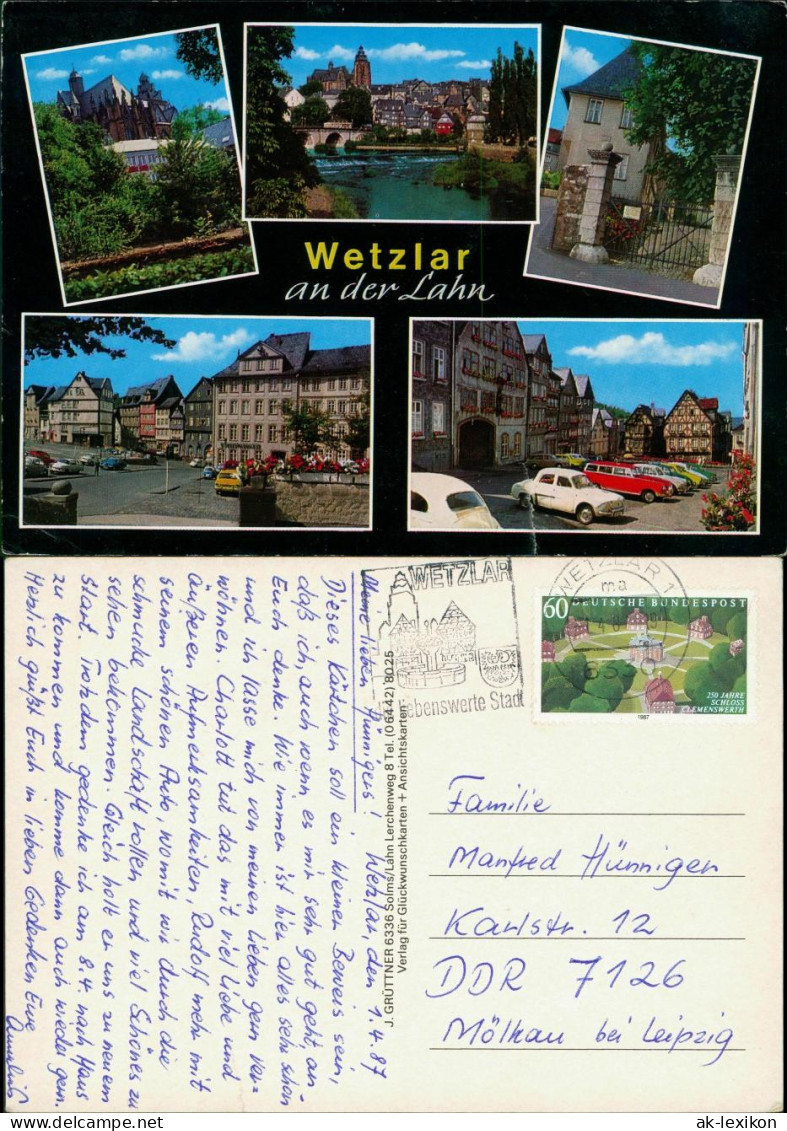 Wetzlar
an der Lahn
WETZLAR
Lebenswerte Stadt
WETZLAR 1
60 DEUTSCHE BUNDESPOST
250 JAHRE
SCHLOSS
CLEMENSWERTH
1987
Wetzlar, den 1.4.87
Meine lieben Hünnigens!
Dieses Kärtchen soll ein kleiner Beweis sein,
daß ich, auch wenn es mir sehr gut geht, an
Euch denke. Wie immer ist hier alles sehr schön
und ich lasse mich von meinen Lieben gern ver-
wöhnen. Charlott tut das mit viel Liebe und
äußeren Aufmerksamkeiten, Rudolf mehr mit
seinem schönen Auto, wo mit wir durch die
schmucke Landschaft rollen und viel Schönes zu
sehen bekommen. Gleich holt er uns zu neuem
Start. Trotzdem gedenke ich am 8.4. nach Haus
zu kommen und komme dann auch wieder gern.
Herzlich grüßt Euch in lieben Gedenken Eure
J. GRÜTTNER 6336 Solms/Lahn Lerchenweg 8 Tel. (06442) 8025
Verlag für Glückwunschkarten + Ansichtskarten
Familie
Manfred Hünnigen
Karlstr. 12
DDR 7126
Mölkau bei Leipzig
ak-lexikon